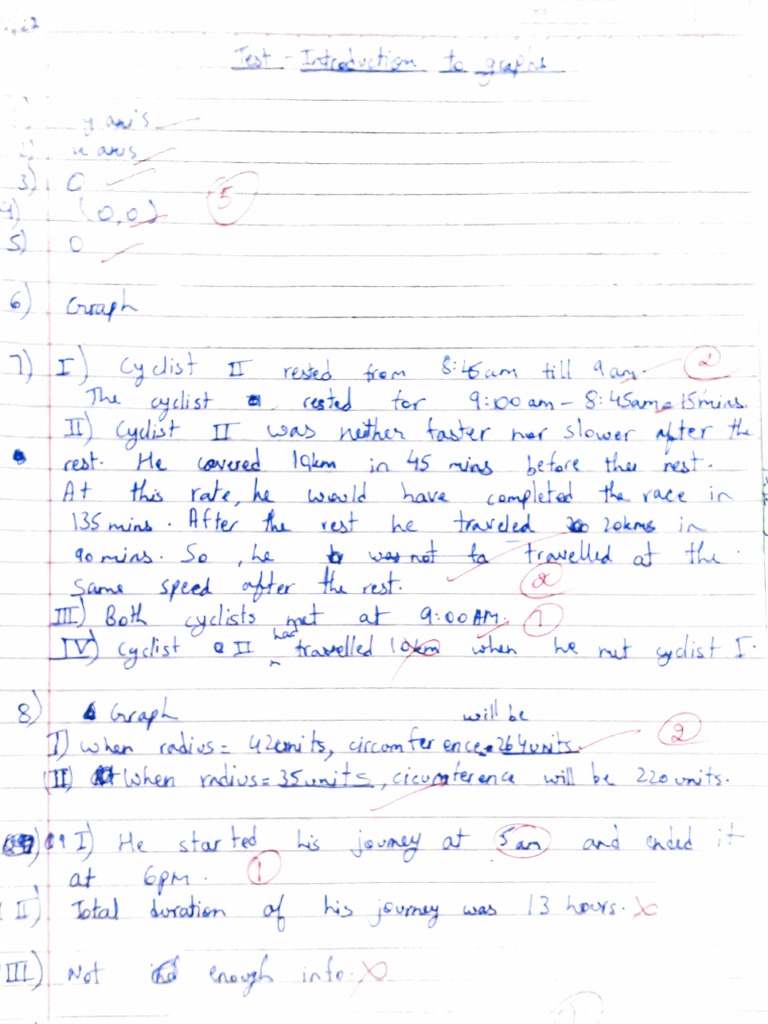 Test - Introduction to graphs
y axis
x axis
3) C
4) (0,0)
5
5) O
6) Graph
7) I) Cyclist II rested from 8:45am till 9am. 2
The cyclist rested for 9:00am - 8:45am = 15mins.
II) Cyclist II was neither faster nor slower after the
rest. He covered 10km in 45 mins before the rest.
At this rate, he would have completed the race in
135 mins. After the rest he traveled 20kms in
90 mins. So, he was not to travelled at the
same speed after the rest. 2
III) Both cyclists met at 9:00AM. 1
IV) Cyclist II had travelled 10km when he met cyclist I.
8) Graph
I) when radius = 42units, circumference will be 264units. 2
II) When radius = 35units, cicumference will be 220units.
9 I) He started his journey at 5am and ended it
at 6pm. 1
II) Total duration of his journey was 13 hours.
III) Not enough info.